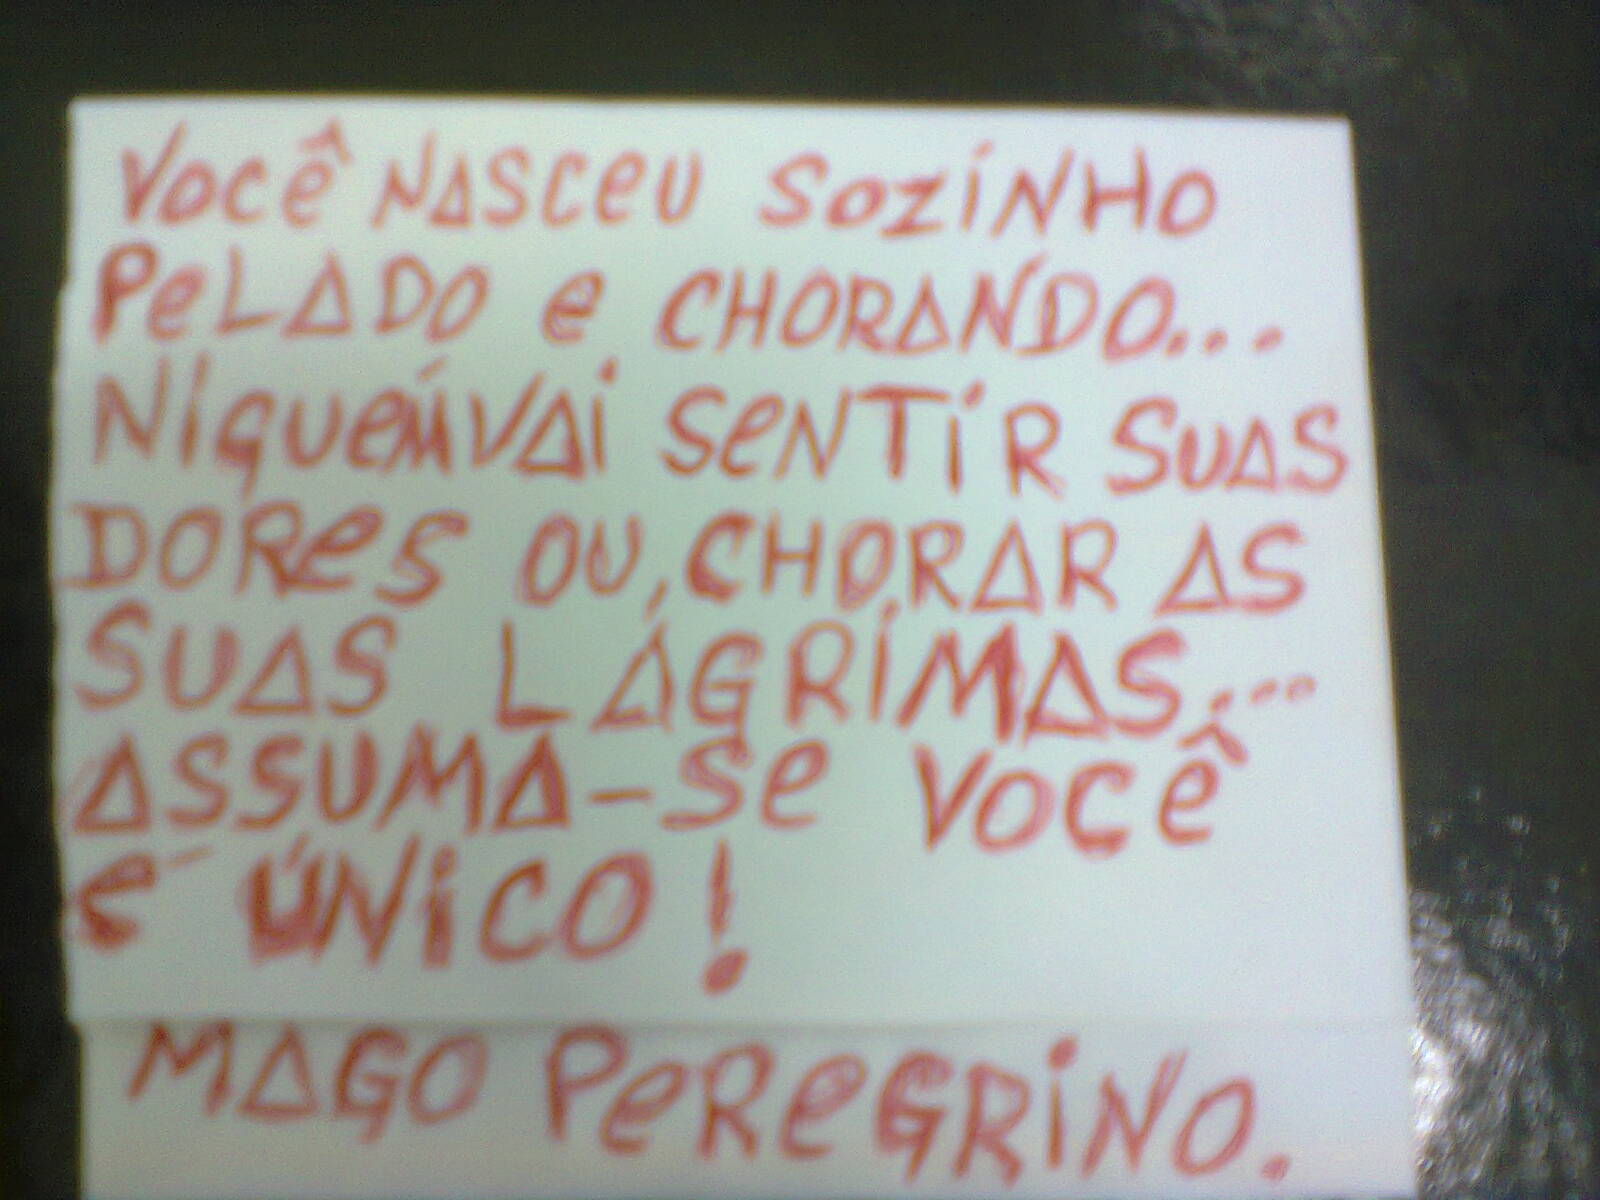 Você NASCEU SOZINHO
PeLADO e CHORANDO...
NiqueM VAi SeNTiR SUAS
DOReS OU, CHORAR AS
SUAS LÁGRÍMAS...
ASSUMA-Se VOCÊ
É ÚNiCO!
MAGO PeReGRiNO.